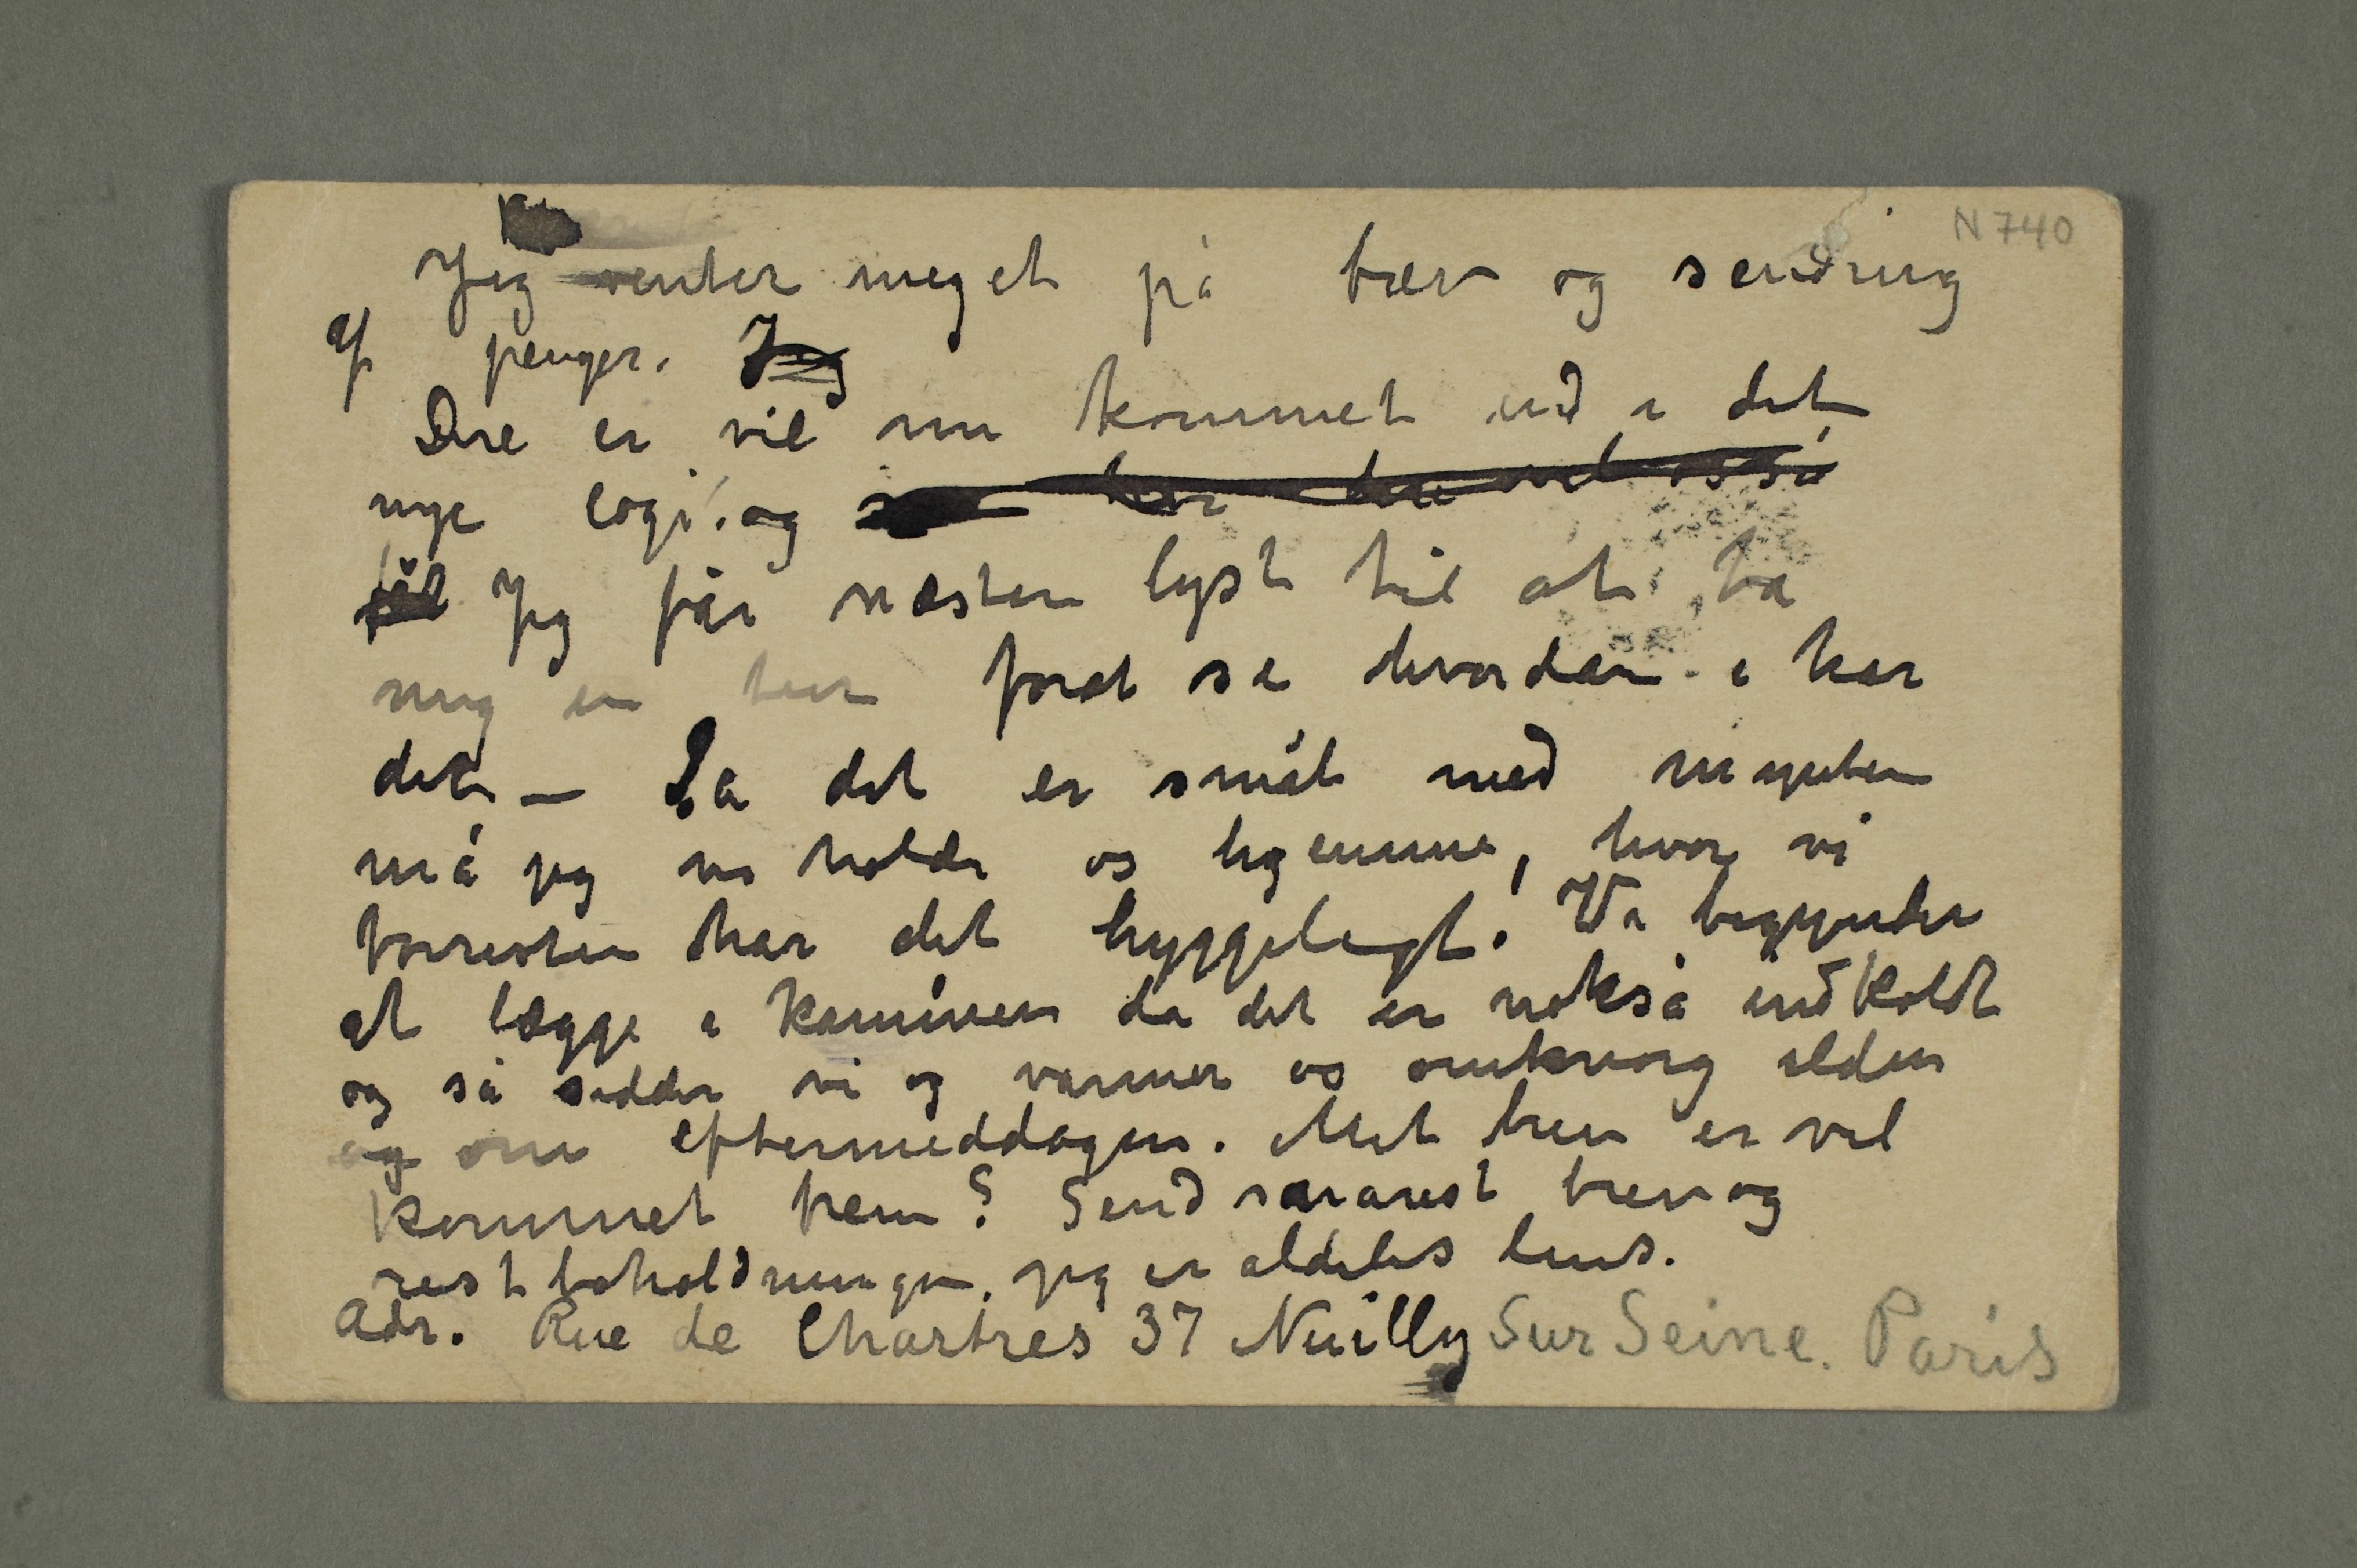 N 740
Jeg venter meget på brev og sending
af penger. Jeg
Dere er vel nu kommet ind i det
nye logi. og har dere vel også
til Jeg får næsten lyst til at ta
mig en tur forat se hvordan i har
det – Da det er småt med mynten
må jeg vi holde os hjemme, hvor vi
forresten har det hyggeligt. Vi begynder
at lægge i kaminen da det er nokså indkoldt
og så sidder vi og varmer os omkring ilden
og om eftermiddagen. Mit brev er vel
kommet frem? Send snarest brev og
restbeholdningen. jeg er aldeles lens.
Adr. Rue de Chartres 37 Neuilly Sur Seine. Paris